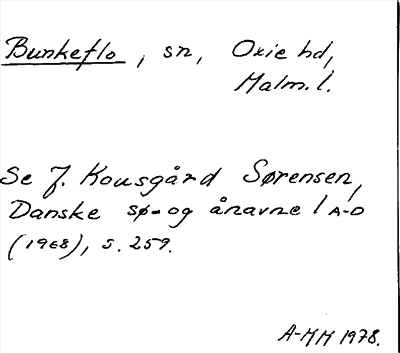 Bunkeflo, sn, Oxie hd,
Malm. l.
Se J. Kousgård Sørensen,
Danske sø- og ånavne 1 A-D
(1968), s. 259.
A-MM 1978.